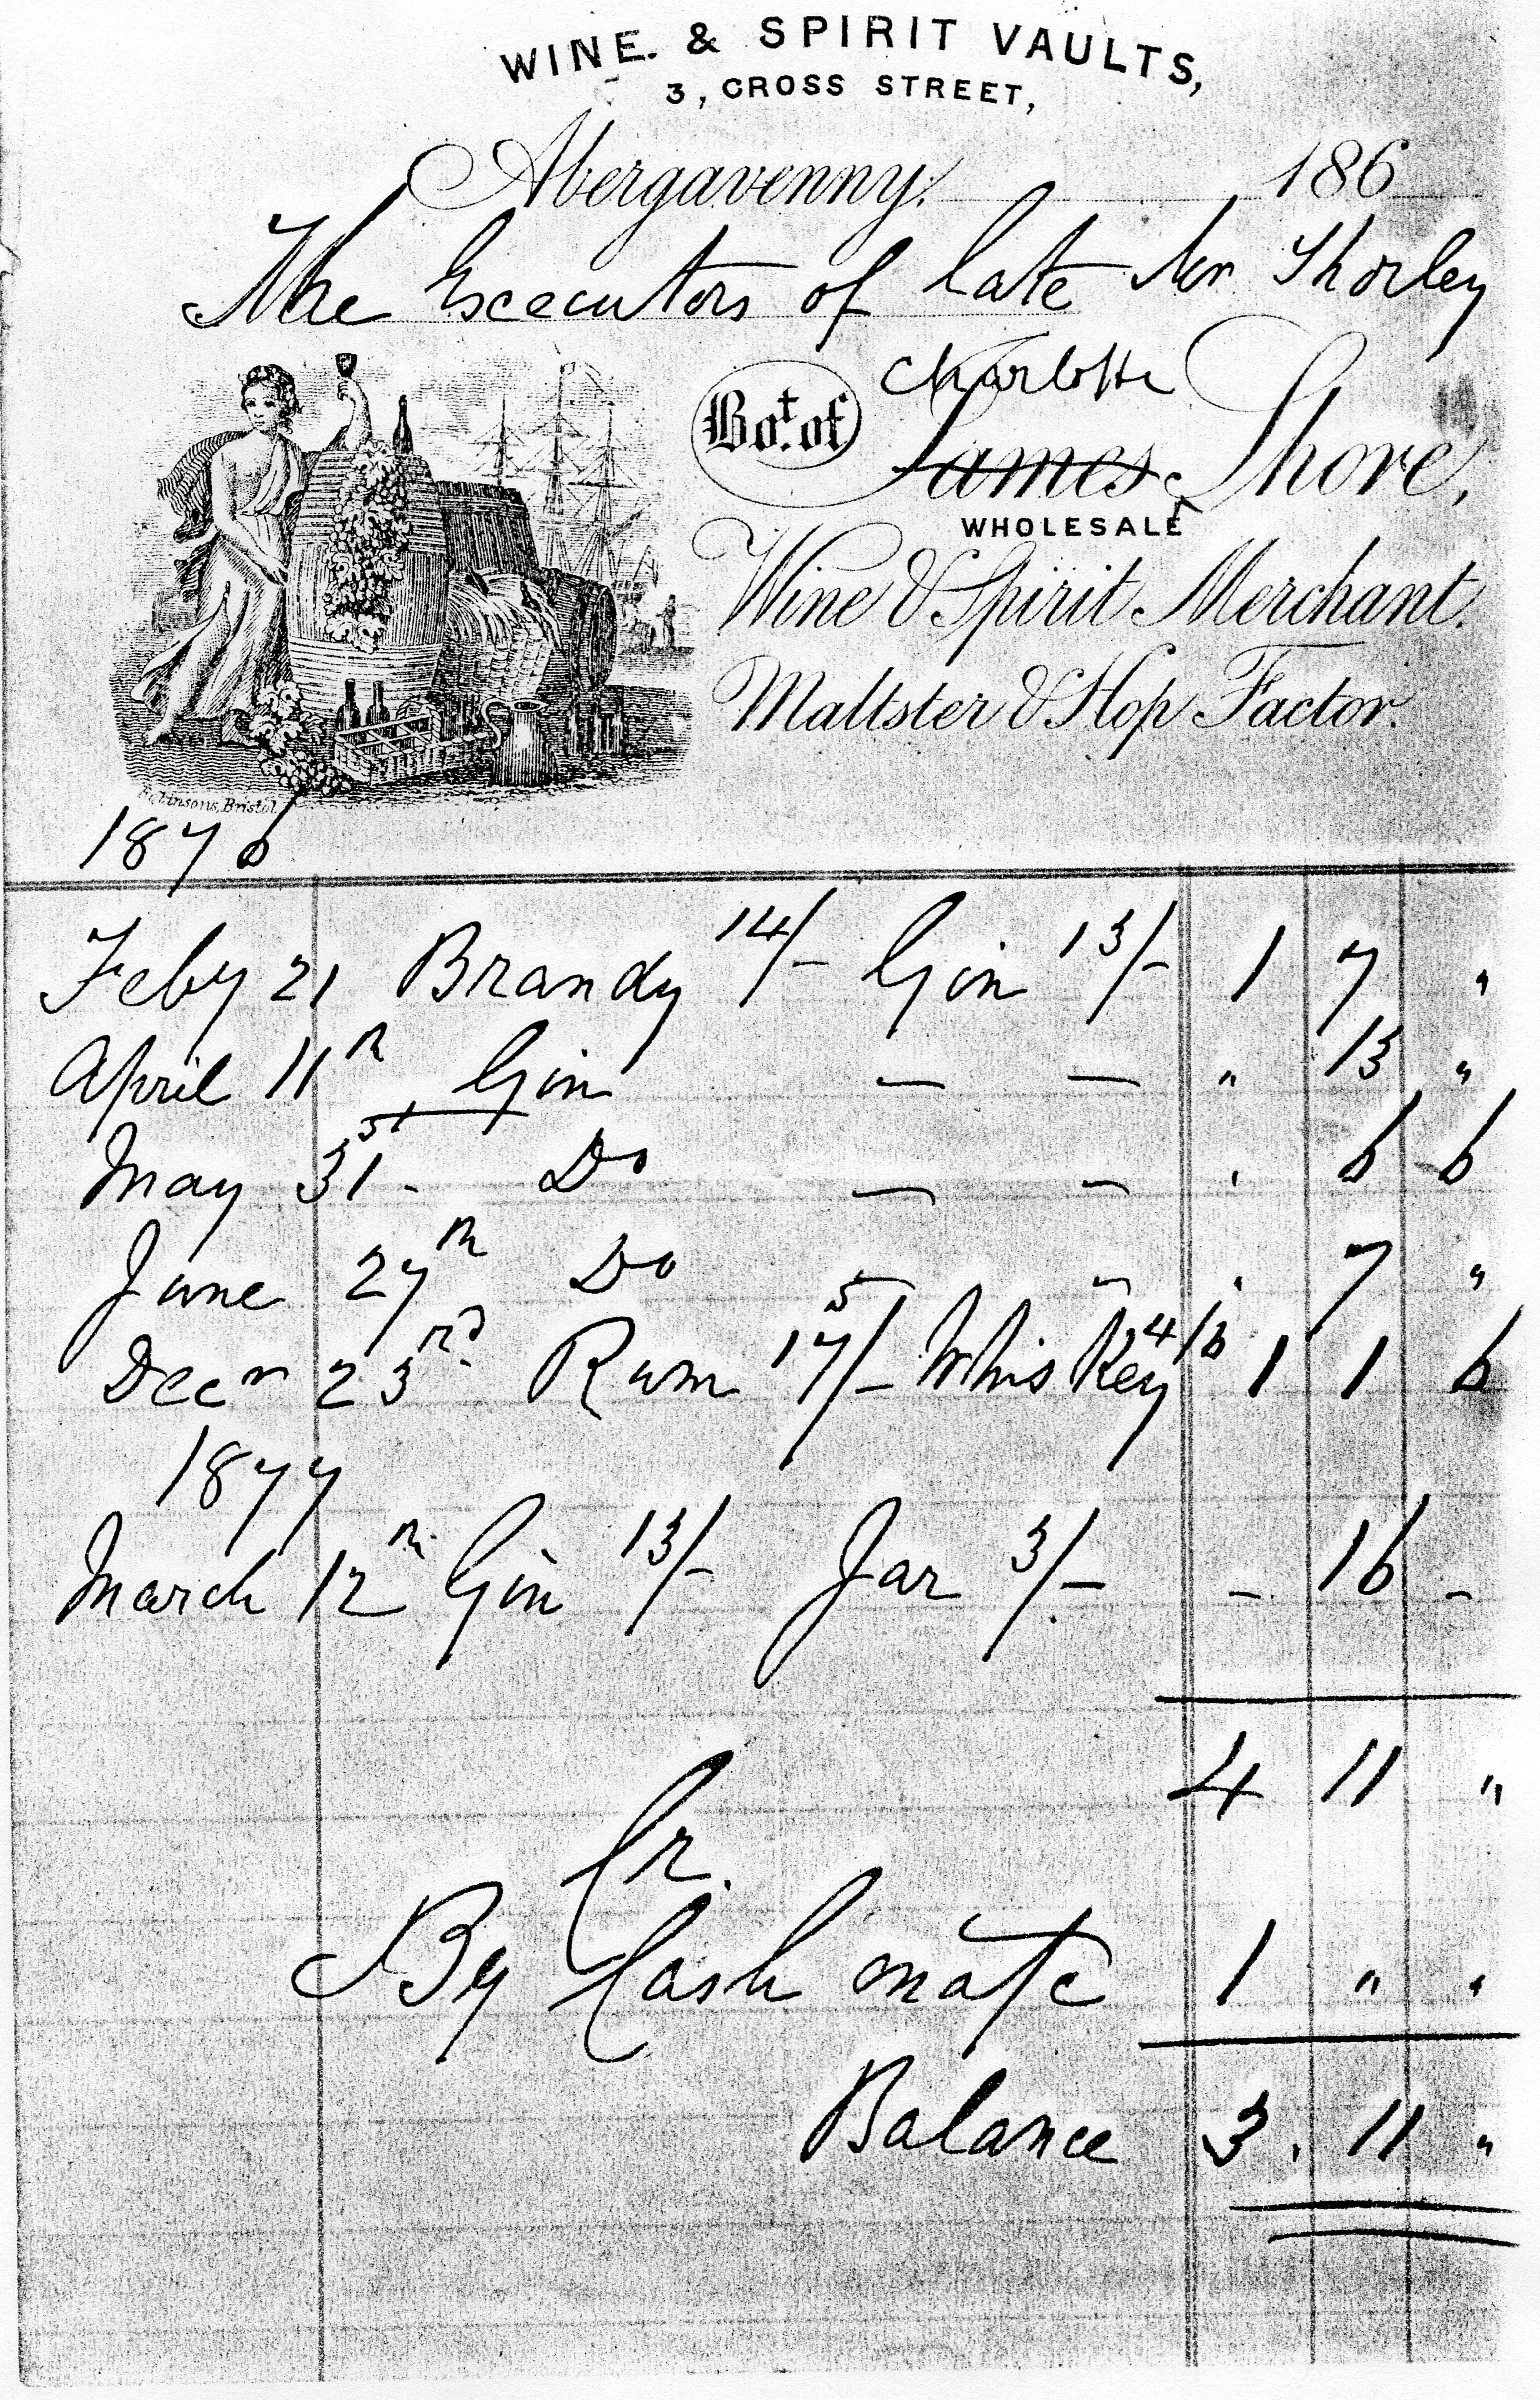 WINE. & SPIRIT VAULTS,
3, CROSS STREET,
Abergavenny. 186
The Executors of late Mr Thorley
Charlotte
Bot. of James Shore,
WHOLESALE
Wine & Spirit Merchant.
Maltster & Hop Factor.
Robinsons, Bristol
1876
Feby 21 Brandy 14/- Gin 13/- 1 7 "
April 11th Gin — — " 13 "
May 31st - Do — — . 6 6
June 27th Do — — . 7 "
Decr 23rd Rum 17/- Whiskey 4/6 1 1 6
1877
March 12th Gin 13/- Jar 3/- - 16 -
4 11 "
Cr.
By Cash 1 " "
Balance 3. 11 "